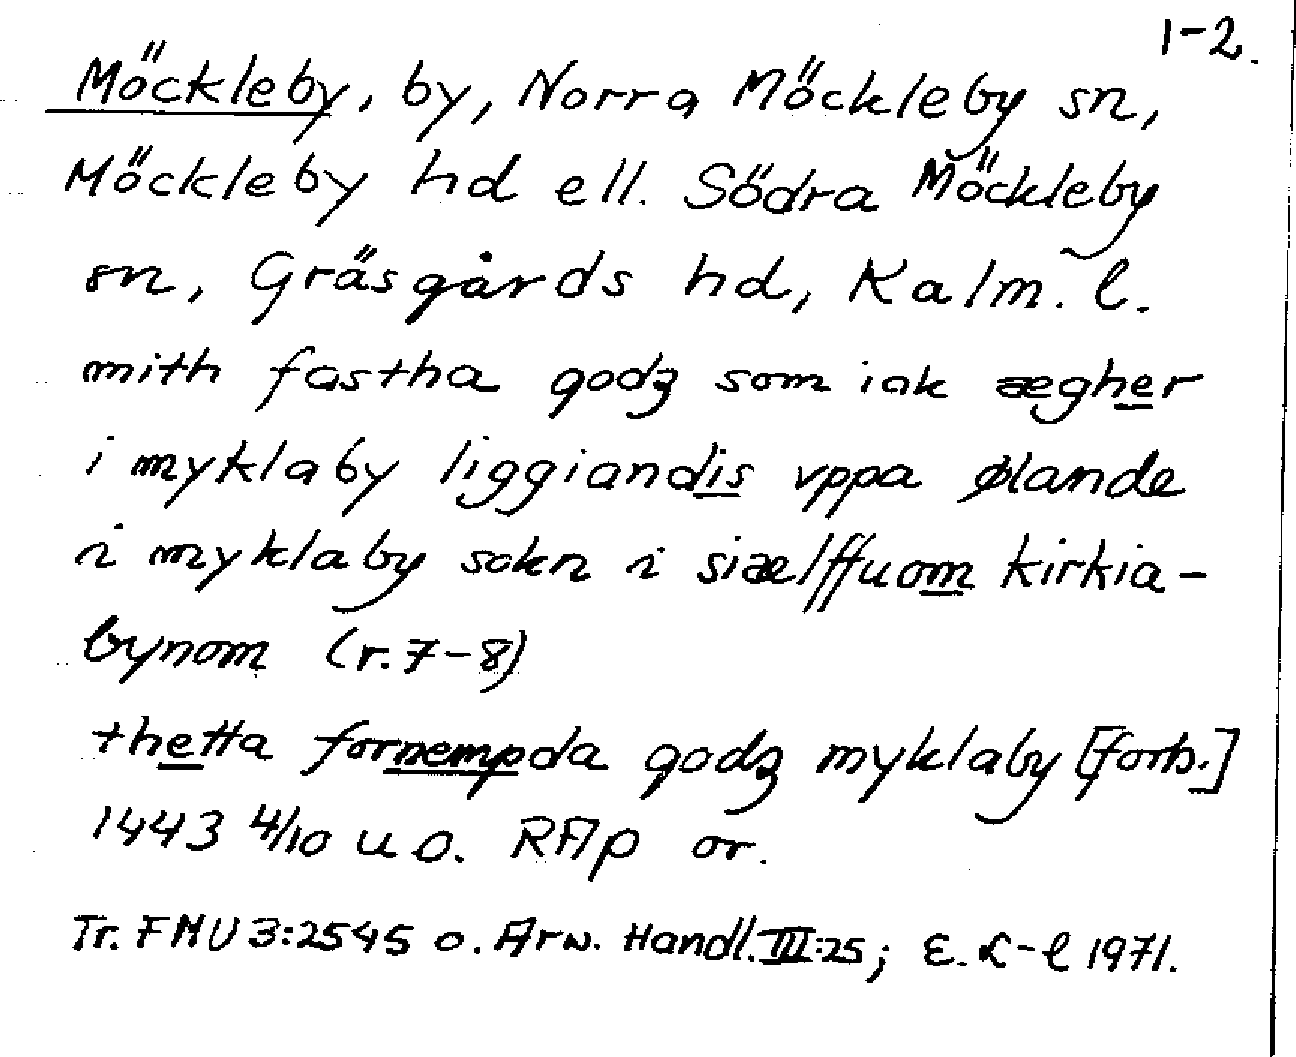 1-2.
Möckleby, by, Norra Möckleby sn,
Möckleby hd ell. Södra Möckleby
sn, Gräsgårds hd, Kalm. l.
mith fastha godz som iak ægher
i myklaby liggiandis vppa ølande
i myklaby sokn i siælffuom kirkia-
bynom (r. 7-8)
thetta fornempda godz myklaby [forts.]
1443 4/10 u o. RAp or.
Tr. FMU 3:2545 o. Arw. Handl. III:25; E. L-l 1971.